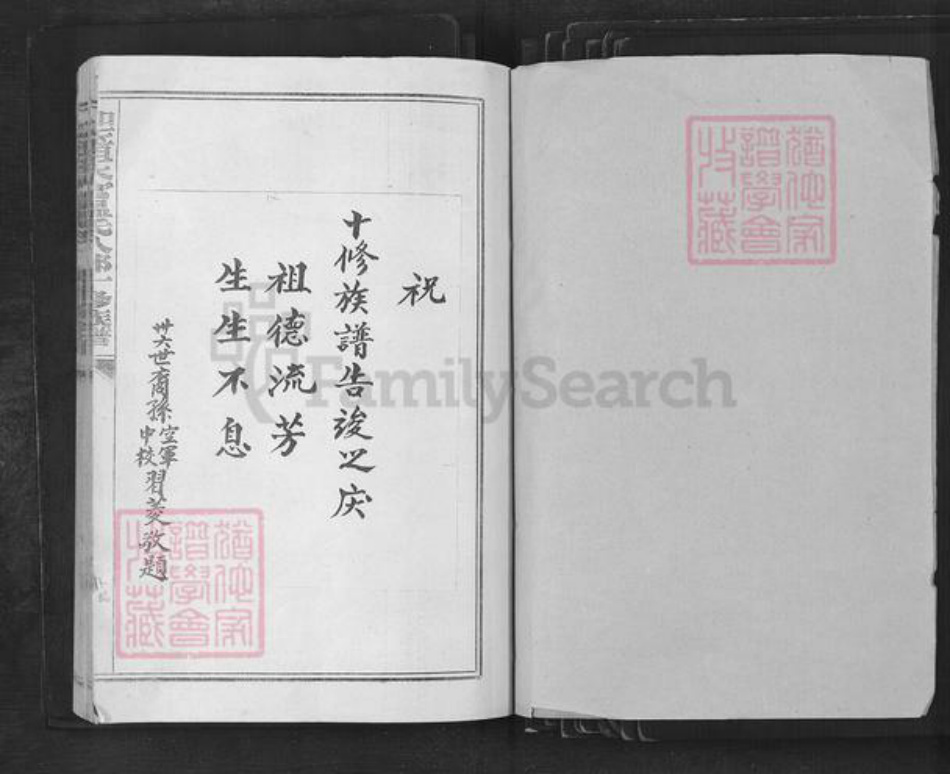 祝
十修族譜告竣之庆
祖德流芳
生生不息
卅六世裔孫空軍中校習菱敬題
猶他家譜學會收藏
猶他家譜學會收藏
FamilySearch